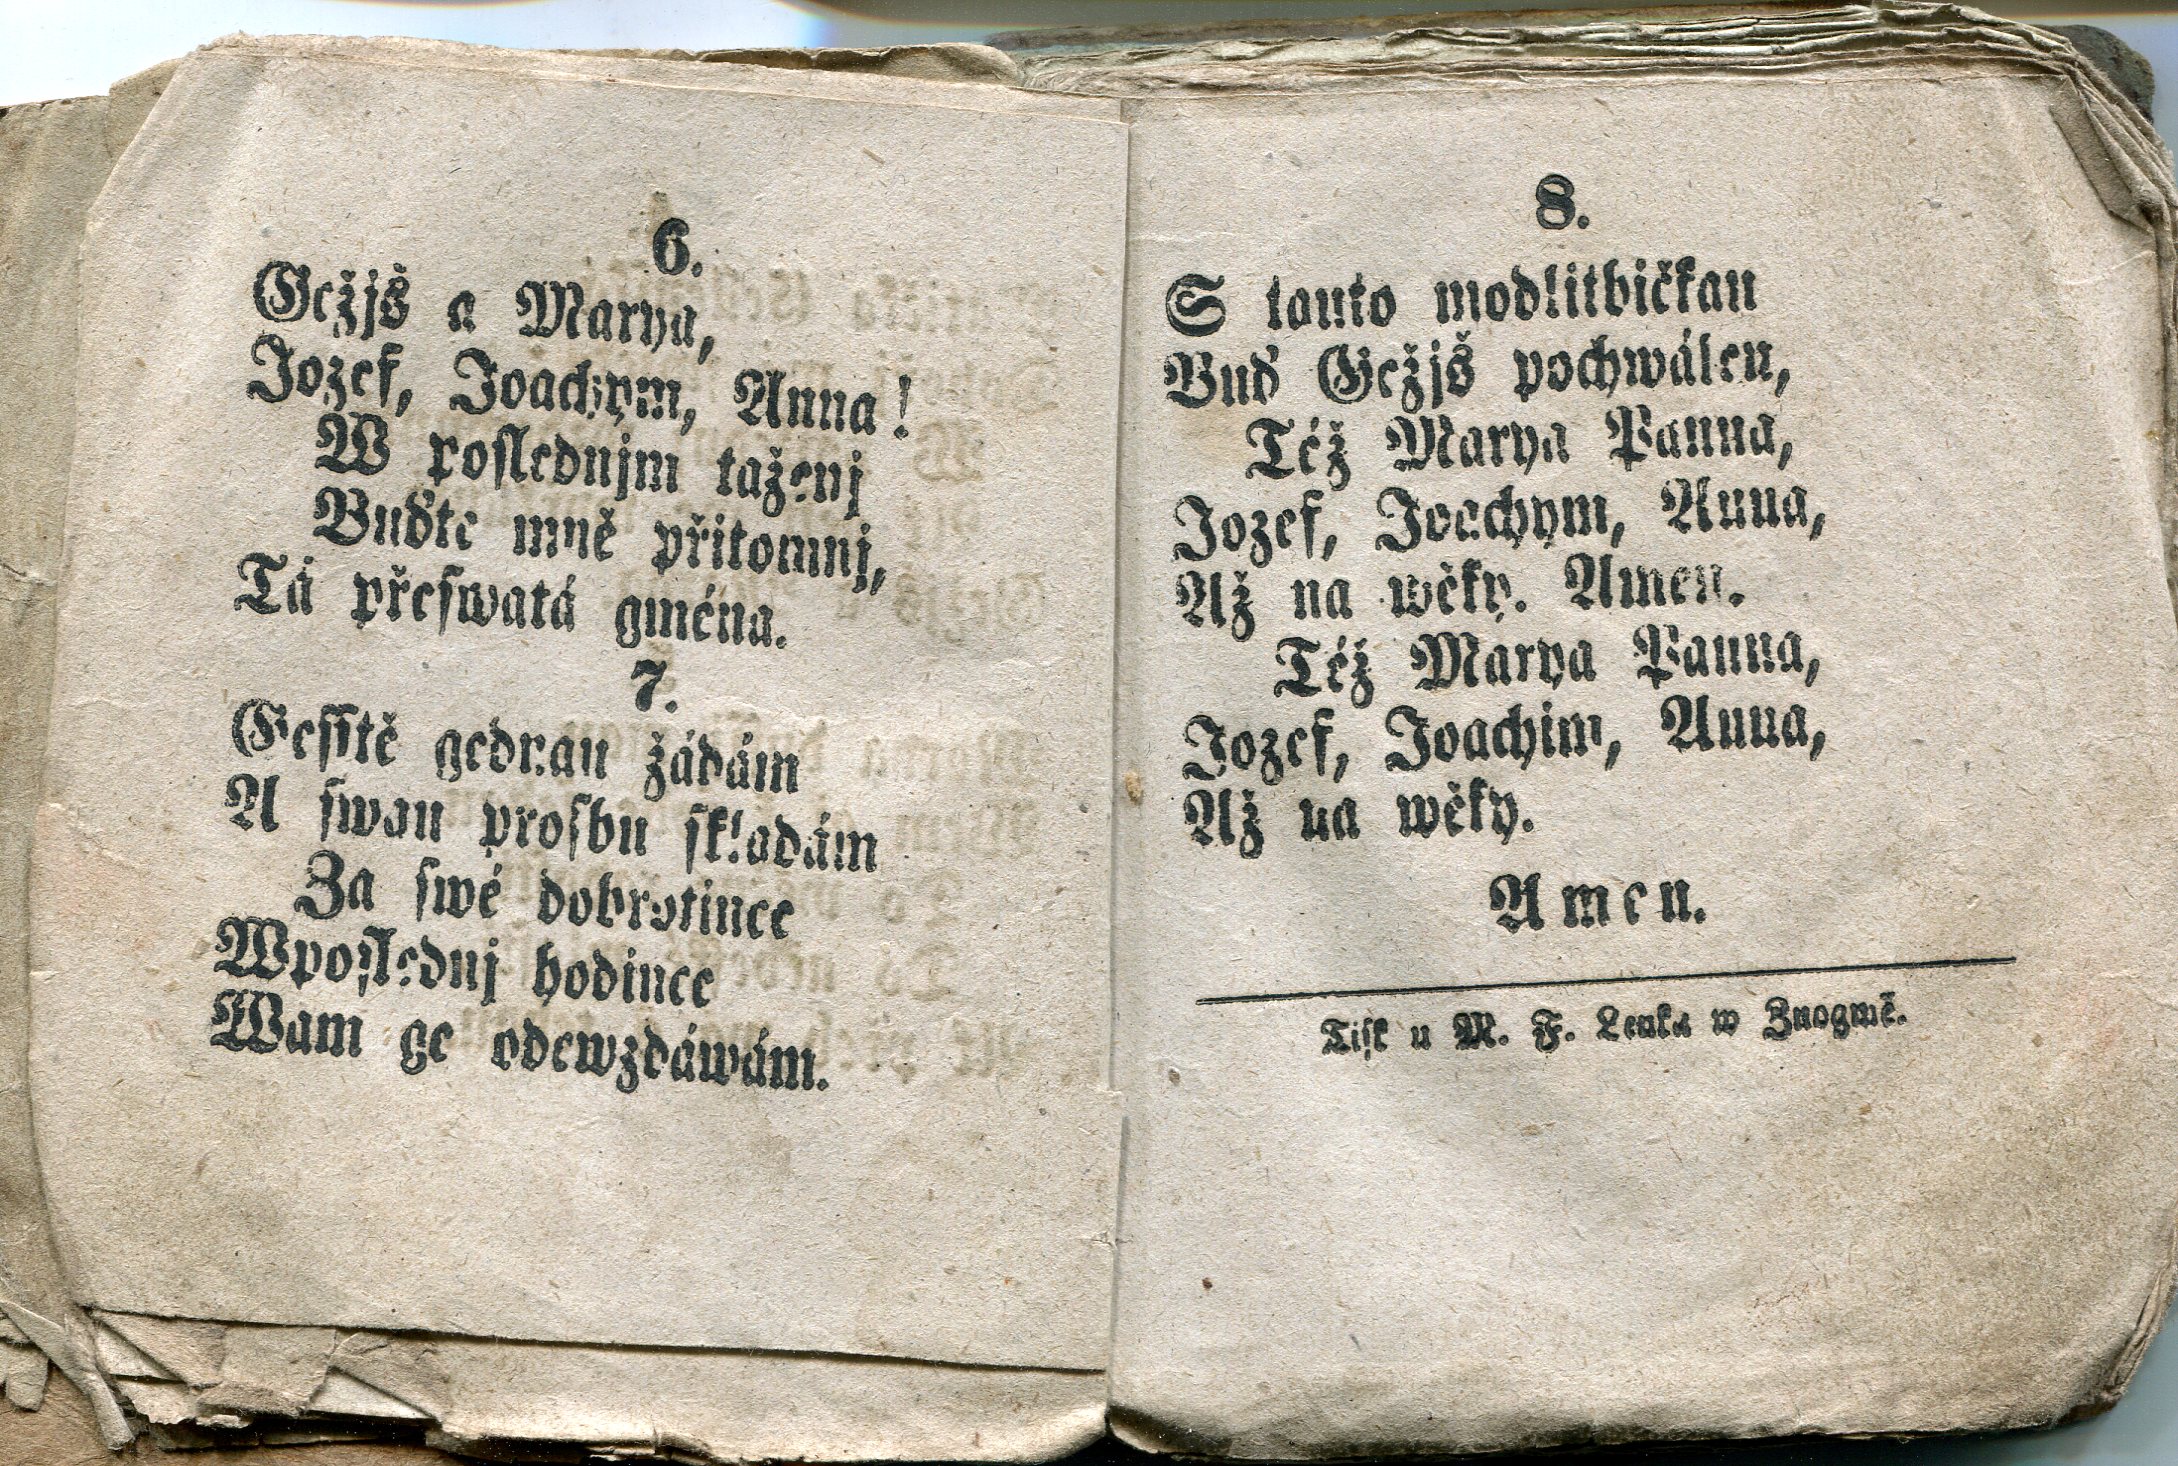 6.
Gežjš a Marya,
Jozef, Joachym, Anna!
W poslednjm taženj
Buďte mně přitomnj,
Tá přeswatá gména.
7.
Gesstě gednau žádám
A swau prosbu skladám
Za swé dobrotince
Wposlednj hodince
Wam ge odewzdáwám.
8.
S tauto modlitbičkau
Buď Gežjš pochwálen,
Též Marya Panna,
Jozef, Joachym, Anna,
Až na wěky. Amen.
Též Marya Panna,
Jozef, Joachim, Anna,
Až na wěky.
Amen.
Tisk u M. F. Lenka w Znogmě.